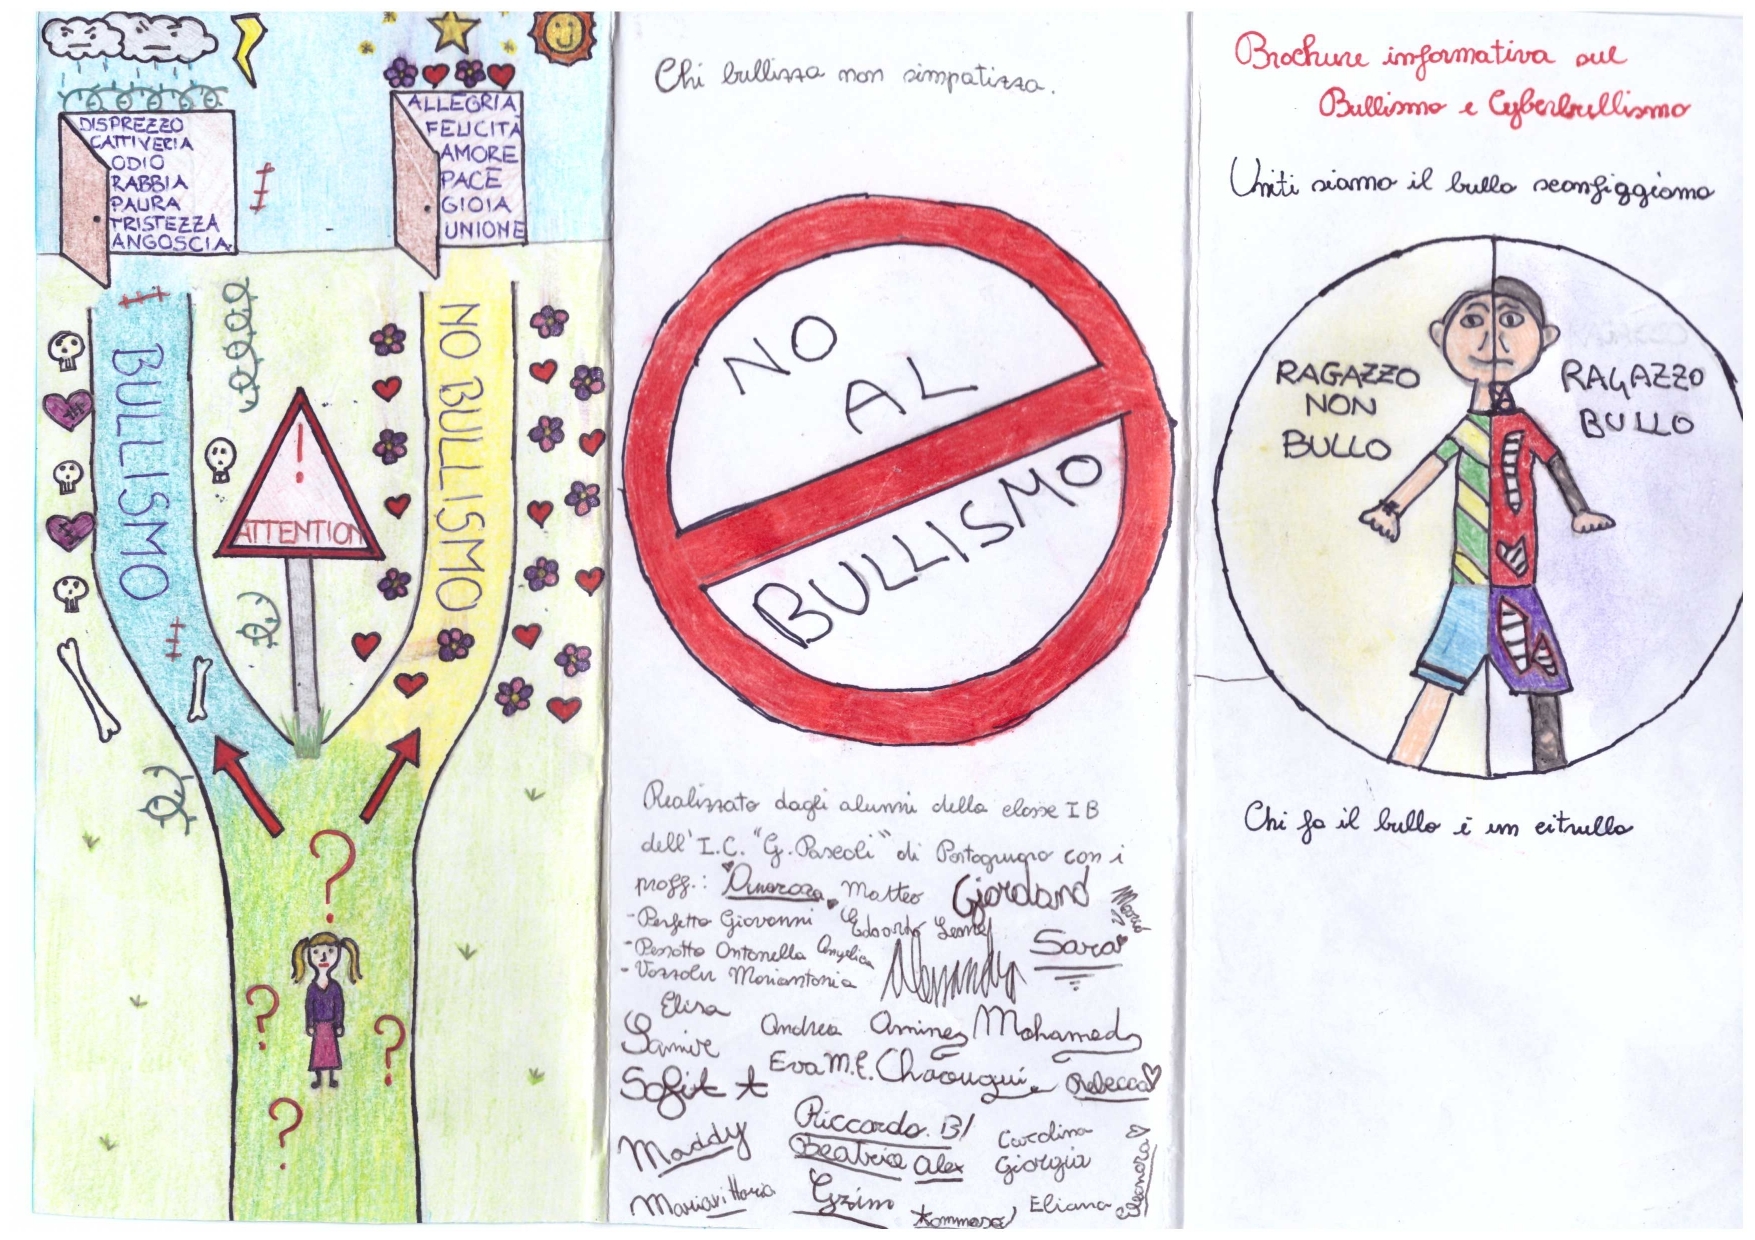 DISPREZZO
CATTIVERIA
ODIO
RABBIA
PAURA
TRISTEZZA
ANGOSCIA
ALLEGRIA
FELICITÀ
AMORE
PACE
GIOIA
UNIONE
BULLISMO
NO BULLISMO
!
ATTENTION
?
?
?
?
Chi bullizza non simpatizza.
NO
AL
BULLISMO
Realizzato dagli alunni della classe I B
dell'I.C. "G. Pascoli" di Portogruaro con i
proff.: Matteo Giordano
- Perfetto Giovanni Edoardo
- Peresotto Antonella Angelica Sara
- Mariantonia Alessandro
Elisa
Samir Andrea Amine Mohamed
Eva M.E. Chaouqui Rebecca
Maddy Riccardo B. Carolina
Beatrice Alex Giorgia
Mariavittoria Tommaso Eliana Eleonora
Brochure informativa sul
Bullismo e Cyberbullismo
Uniti siamo il bullo sconfiggiamo
RAGAZZO
NON
BULLO
RAGAZZO
BULLO
Chi fa il bullo è un citrullo